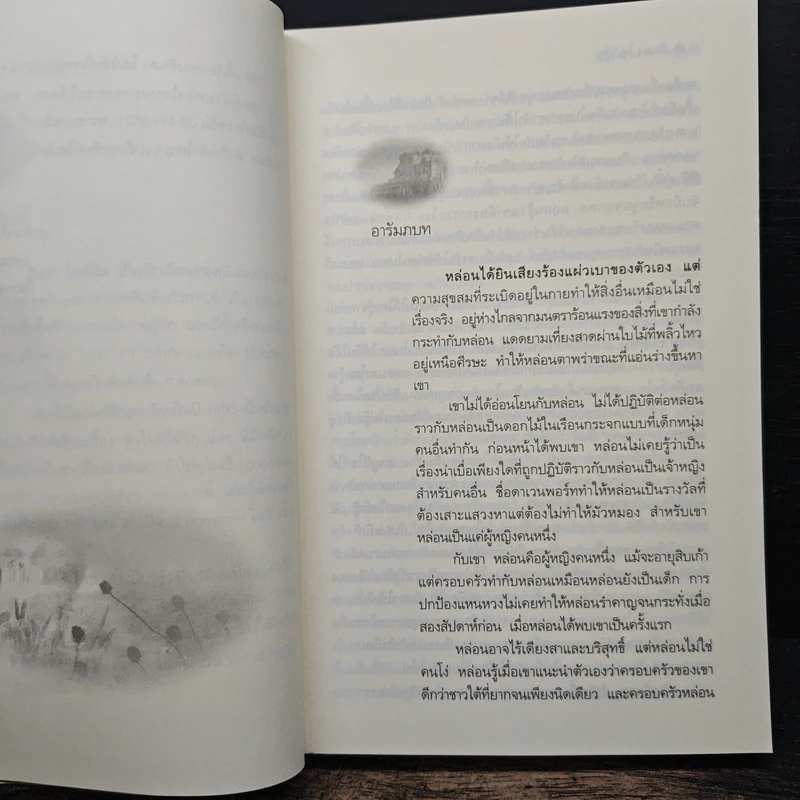 อารัมภบท
หล่อนได้ยินเสียงร้องแผ่วเบาของตัวเอง แต่
ความสุขสมที่ระเบิดอยู่ในกายทำให้สิ่งอื่นเหมือนไม่ใช่
เรื่องจริง อยู่ห่างไกลจากมนตราร้อนแรงของสิ่งที่เขากำลัง
กระทำกับหล่อน แดดยามเที่ยงสาดผ่านใบไม้ที่พลิ้วไหว
อยู่เหนือศีรษะ ทำให้หล่อนตาพร่าขณะที่แอ่นร่างขึ้นหา
เขา
เขาไม่ได้อ่อนโยนกับหล่อน ไม่ได้ปฏิบัติต่อหล่อน
ราวกับหล่อนเป็นดอกไม้ในเรือนกระจกแบบที่เด็กหนุ่ม
คนอื่นทำกัน ก่อนหน้าได้พบเขา หล่อนไม่เคยรู้ว่าเป็น
เรื่องน่าเบื่อเพียงใดที่ถูกปฏิบัติราวกับหล่อนเป็นเจ้าหญิง
สำหรับคนอื่น ชื่อดาเวนพอร์ททำให้หล่อนเป็นรางวัลที่
ต้องเสาะแสวงหาแต่ต้องไม่ทำให้มัวหมอง สำหรับเขา
หล่อนเป็นแค่ผู้หญิงคนหนึ่ง
กับเขา หล่อนคือผู้หญิงคนหนึ่ง แม้จะอายุสิบเก้า
แต่ครอบครัวทำกับหล่อนเหมือนหล่อนยังเป็นเด็ก การ
ปกป้องแหนหวงไม่เคยทำให้หล่อนรำคาญจนกระทั่งเมื่อ
สองสัปดาห์ก่อน เมื่อหล่อนได้พบเขาเป็นครั้งแรก
หล่อนอาจไร้เดียงสาและบริสุทธิ์ แต่หล่อนไม่ใช่
คนโง่ หล่อนรู้เมื่อเขาแนะนำตัวเองว่าครอบครัวของเขา
ดีกว่าชาวใต้ที่ยากจนเพียงนิดเดียว และครอบครัวหล่อน